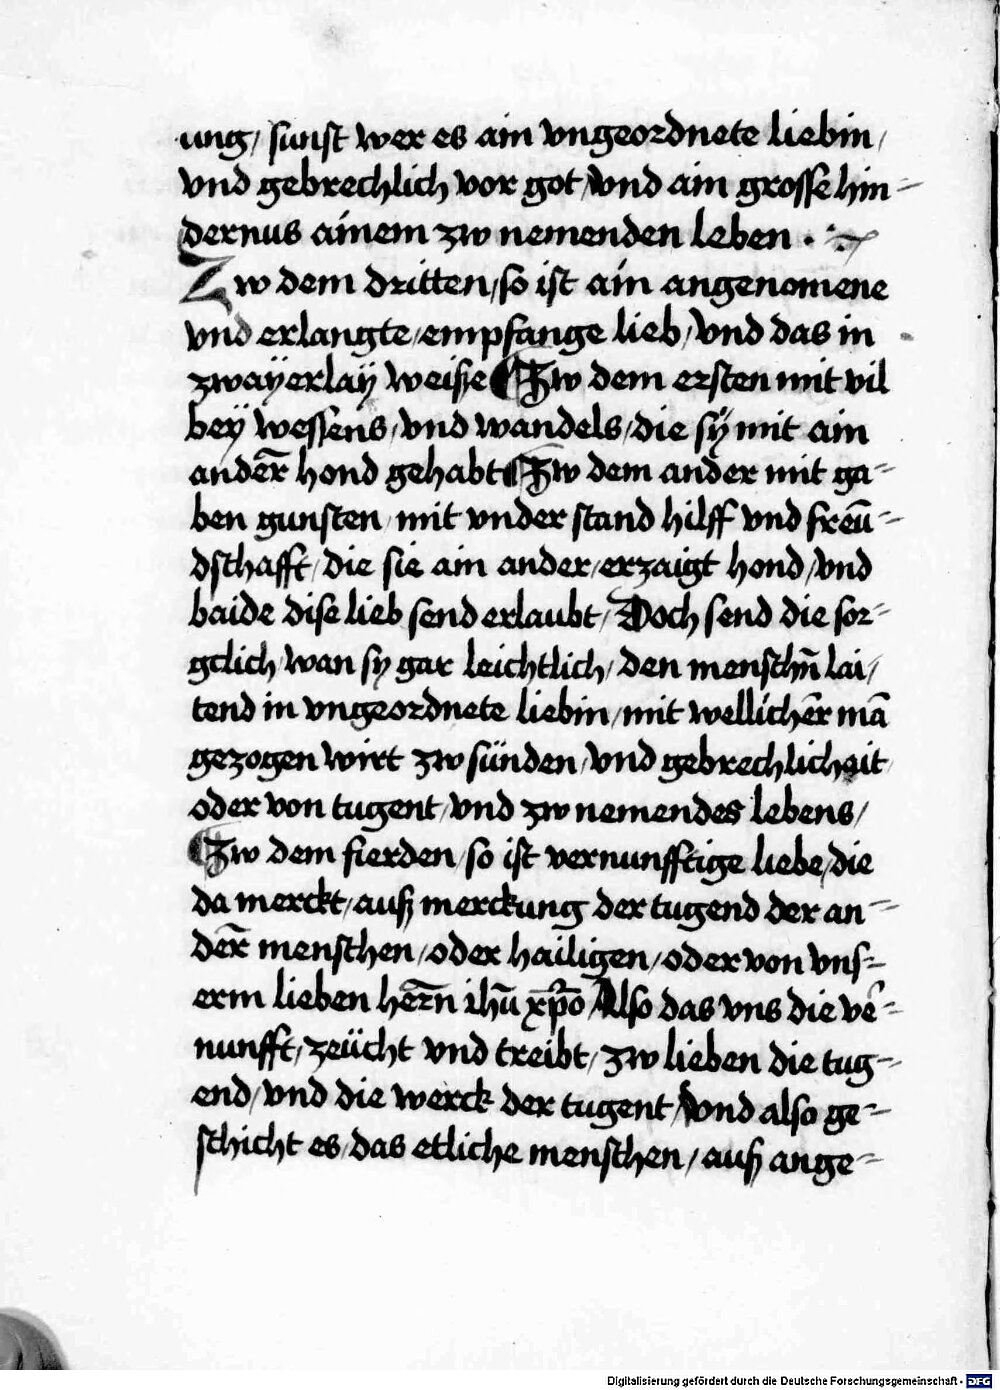 ung/ sunst wer es ain vngeordnete liebin/
vnd gebrechlich vor got/ vnd ain grosse hin=
dernus ainem zw nemenden leben .
Zw dem dritten/ so ist ain angenomene
vnd erlangte/ empfange lieb/ vnd das in
zwaÿerlaÿ weiße ¶ Zw dem ersten mit vil
beÿ wessens/ vnd wandels/ die sÿ mit ain
ander̄ hond gehabt ¶ Zw dem ander mit ga=
ben gunsten/ mit vnder stand hilff vnd freū=
dschafft/ die sie ain ander/ erzaigt hond/ vnd
baide dise lieb send erlaubt/ Doch send die sor=
gclich/ wan sy gar leichtlich/ den menschn̄ lai/
tend in vngeordnete liebin/ mit wellicher̄ mā
gezogen wirt zw sünden/ vnd gebrechlichait
oder von tugent/ vnd zw nemendes lebens/
¶ Zw dem fierden/ so ist vernunfftige liebe/ die
da merckt/ auß merckung der tugend der an=
der̄ menschen/ oder hailigen/ oder von vns=
erm lieben her̄n ihū xp̄o/ Also das vns die ve᷑=
nunfft/ zeücht vnd treibt/ zw lieben die tug=
end/ vnd die werck der tugent/ Vnd also ge=
schicht es/ das etliche menschen/ auß ange=
Digitalisierung gefördert durch die Deutsche Forschungsgemeinschaft - DFG